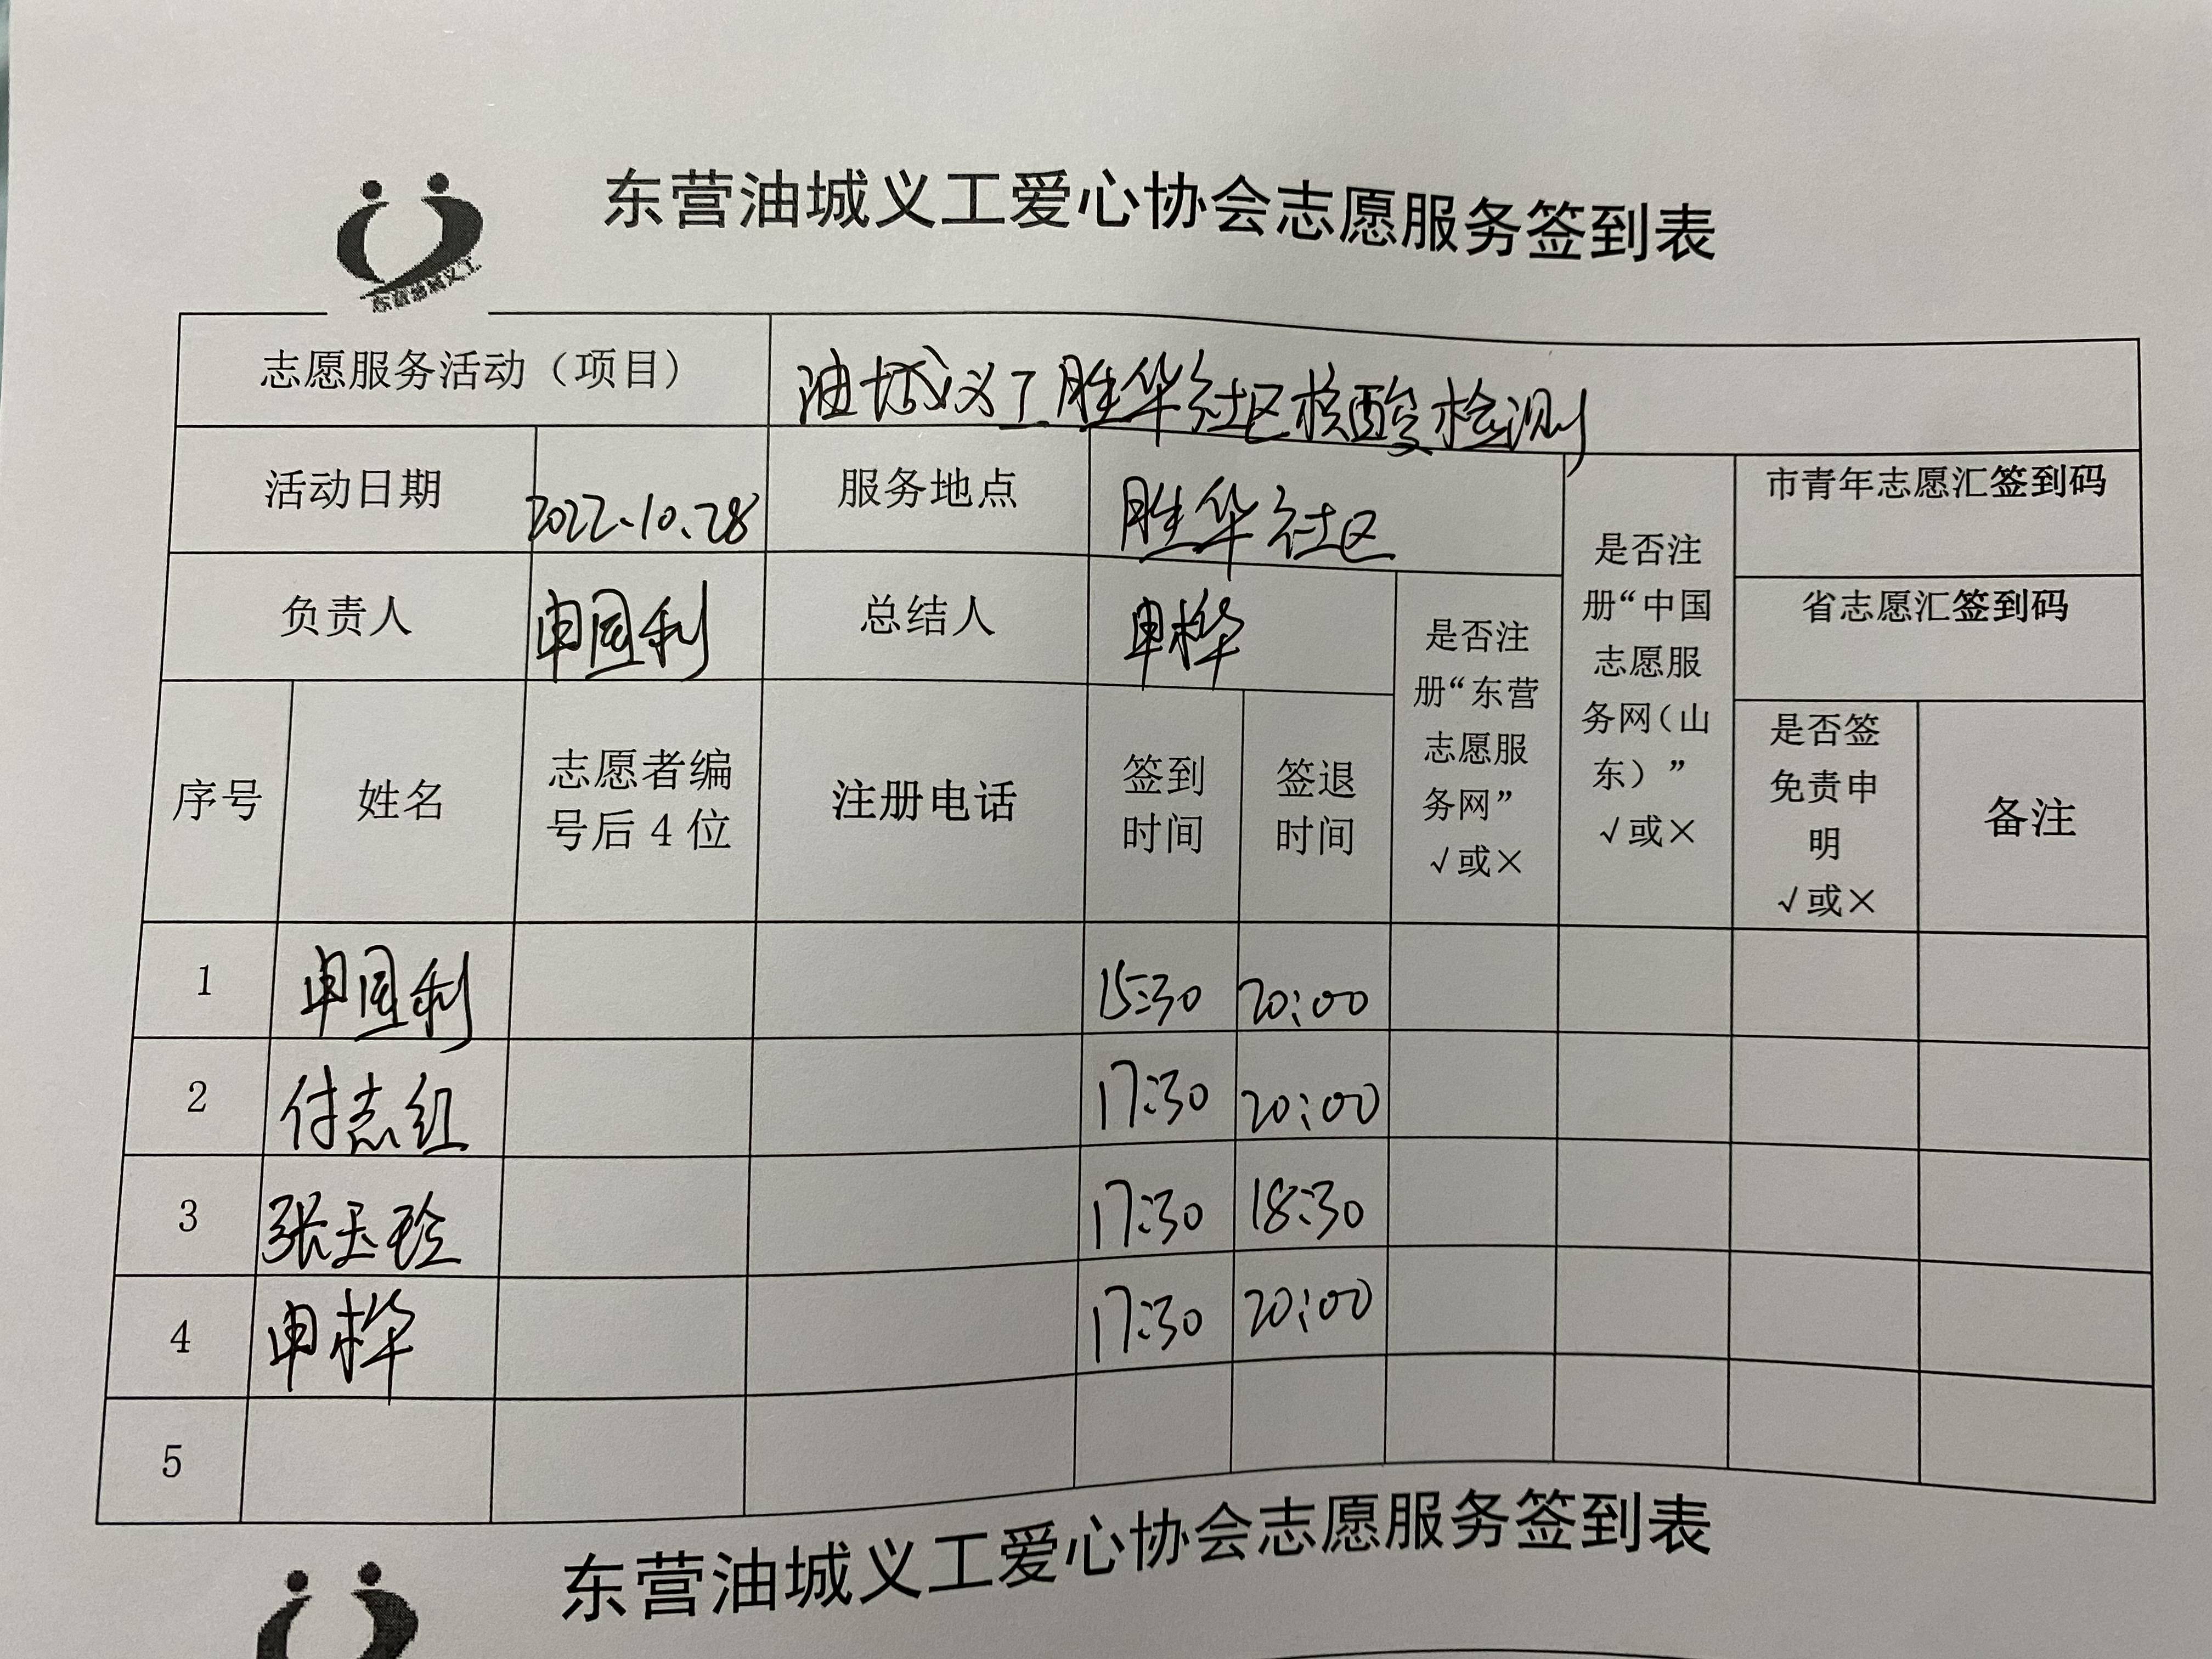 东营油城义工爱心协会志愿服务签到表
东营油城义工
志愿服务活动（项目） 油城义工胜华社区核酸检测
活动日期 2022.10.28 服务地点 胜华社区
市青年志愿汇签到码
负责人 申国利 总结人 申桦
省志愿汇签到码
序号 姓名
志愿者编
号后4位
注册电话
签到
时间
签退
时间
是否注
册“东营
志愿服
务网”
√或×
是否注
册“中国
志愿服
务网（山
东）”
√或×
是否签
免责申
明
√或×
备注
1 申国利 15:30 20:00
2 付志红 17:30 20:00
3 张玉玲 17:30 18:30
4 申桦 17:30 20:00
5
东营油城义工爱心协会志愿服务签到表